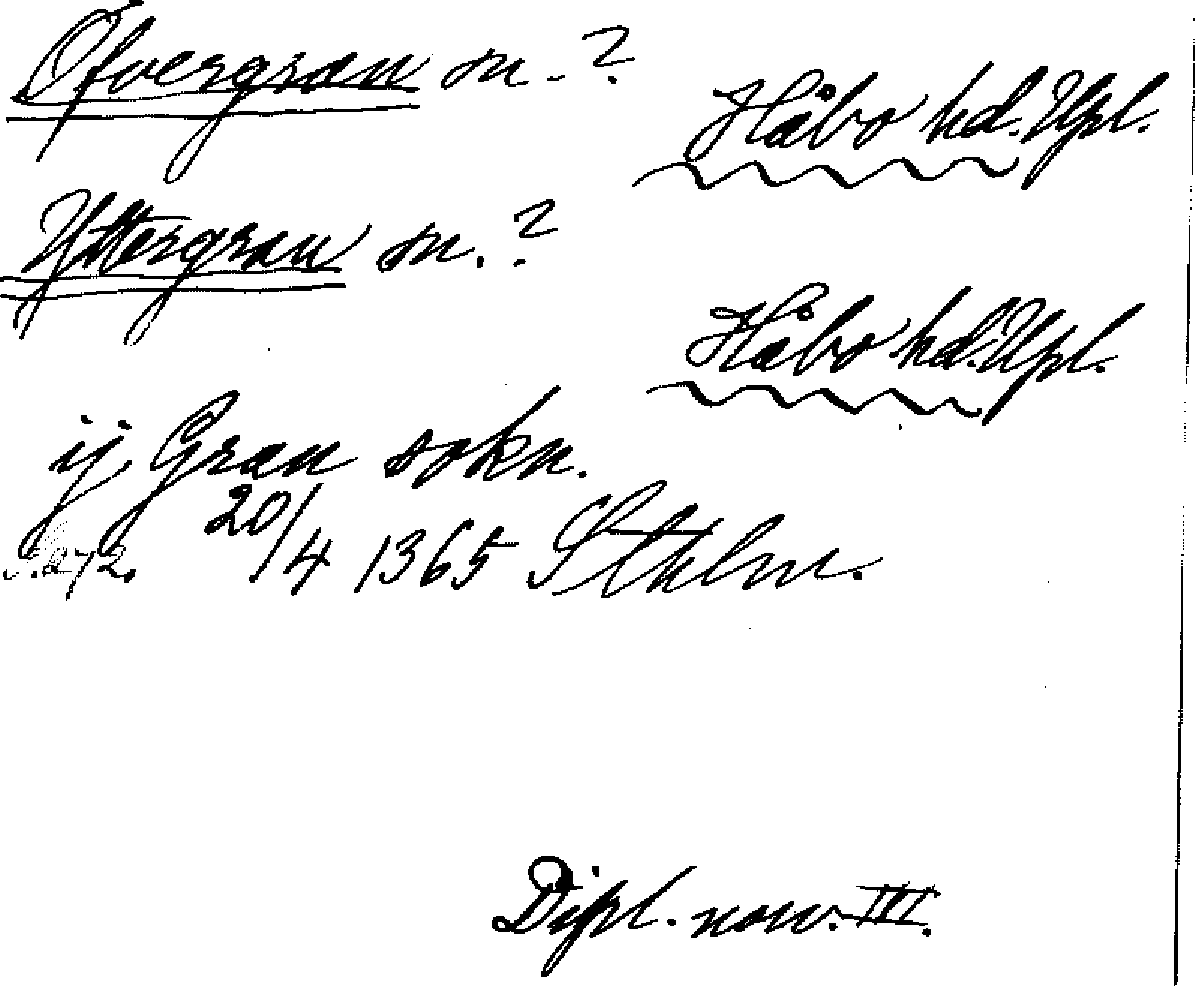 Øfvergran sn.?
Håbo hd. Upl.
Yttergran sn.?
Håbo hd. Upl.
ij Gran sokn.
S. 272. 20/4 1365 Sthlm.
Dipl. norv. III.